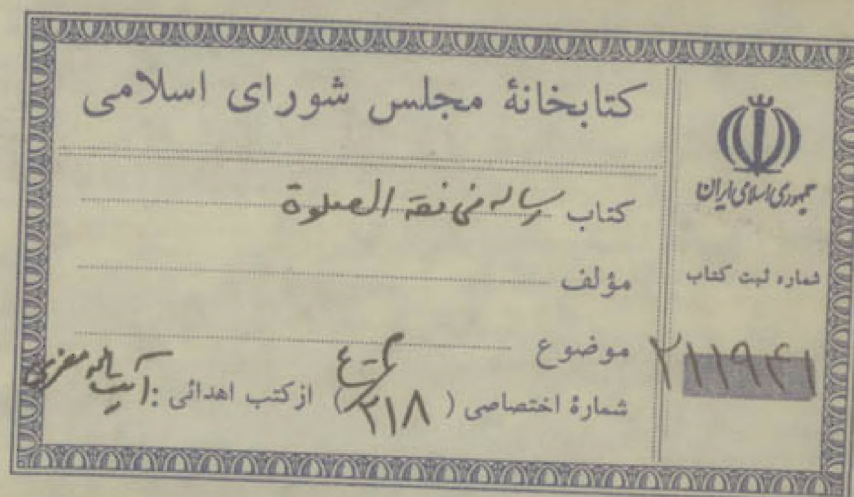 کتابخانهٔ مجلس شورای اسلامی
کتاب رساله فی فقه الصلوة
مؤلف
موضوع
شمارهٔ اختصاصی (۲۱۸) از کتب اهدائی :
جمهوری اسلامی ایران
شماره ثبت کتاب
۲۱۱۹۴۱